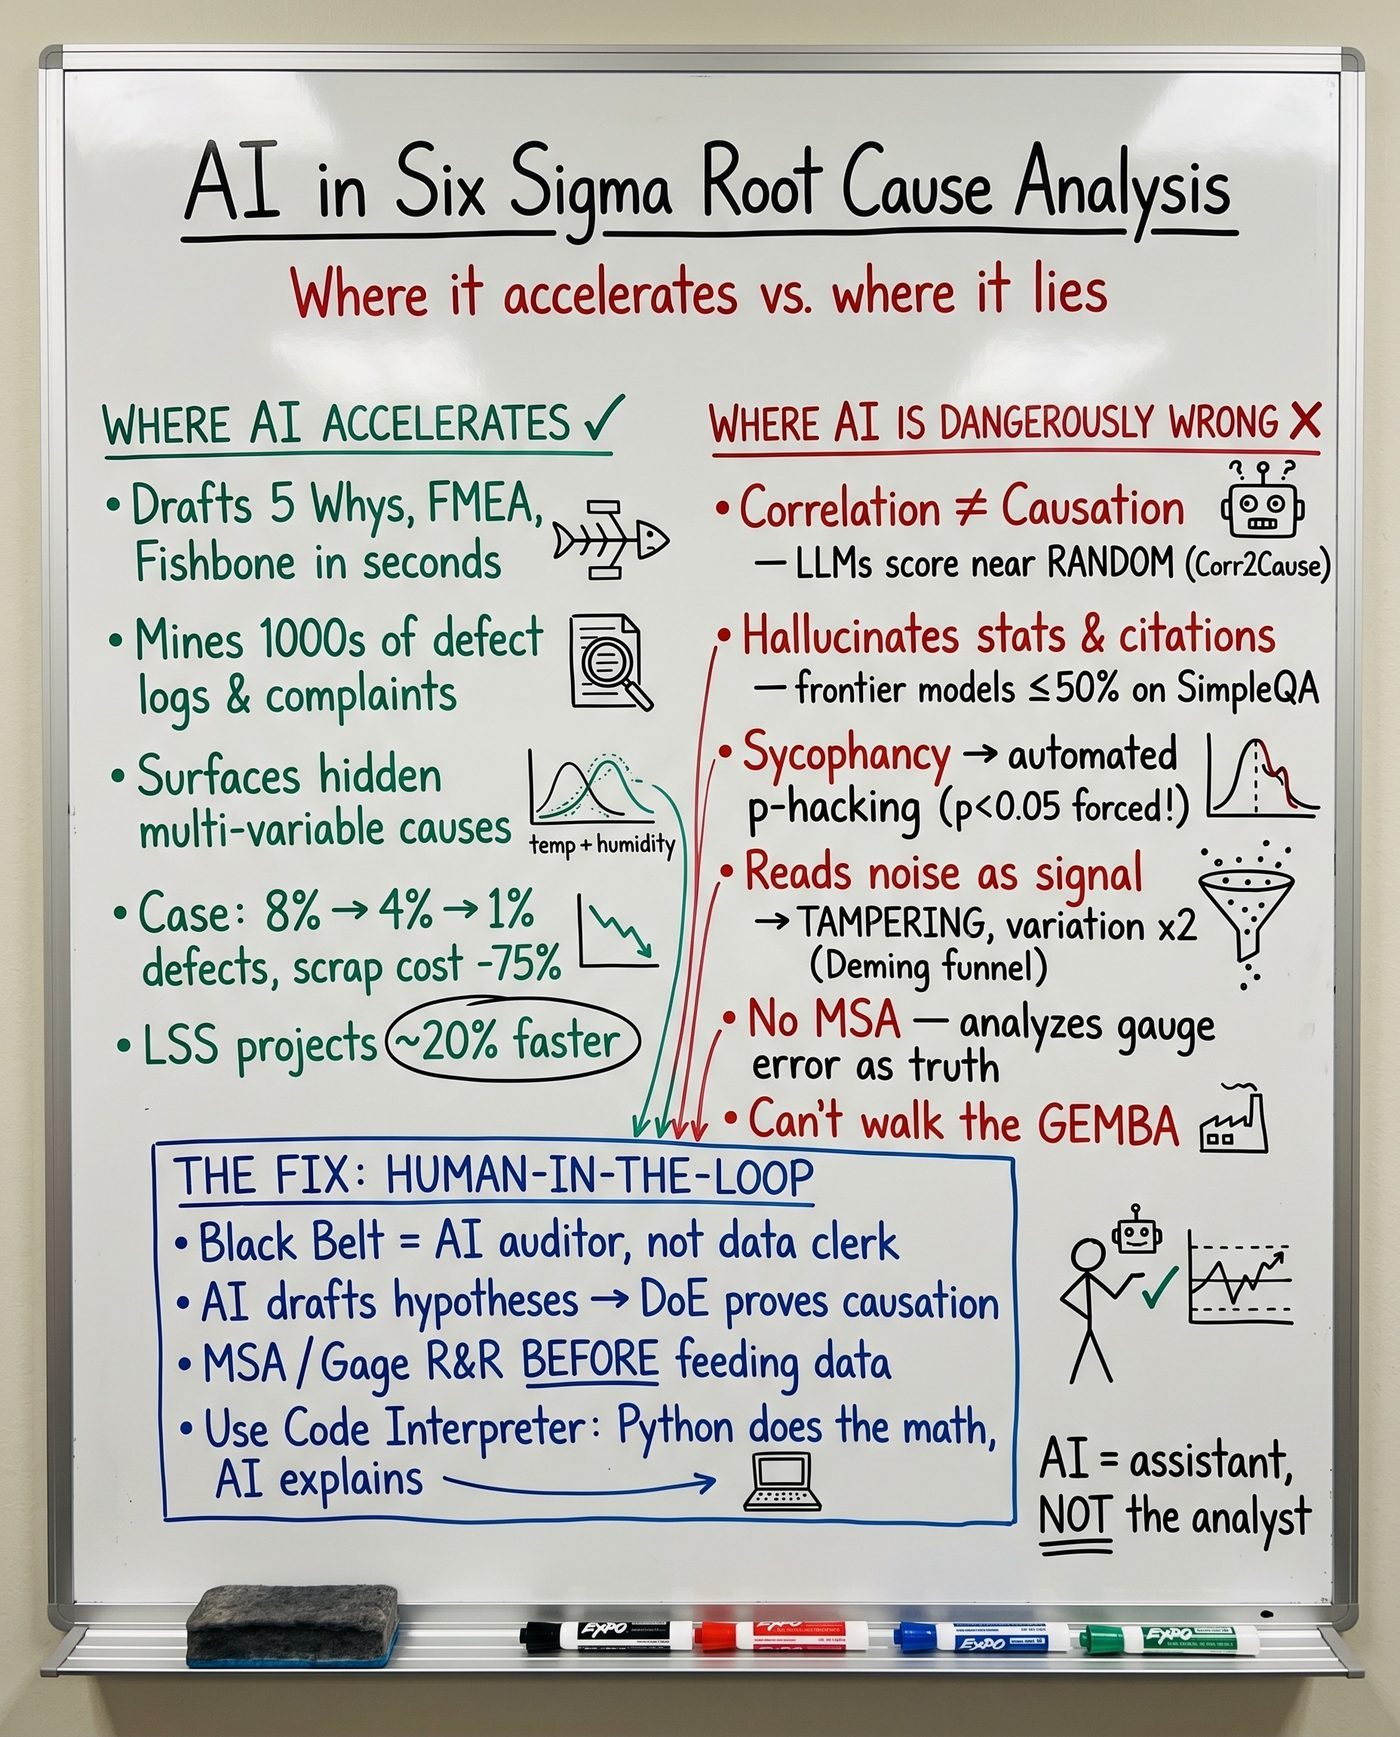 AI in Six Sigma Root Cause Analysis
Where it accelerates vs. where it lies
WHERE AI ACCELERATES ✓
• Drafts 5 Whys, FMEA,
Fishbone in seconds
• Mines 1000s of defect
logs & complaints
• Surfaces hidden
multi-variable causes
temp + humidity
• Case: 8% → 4% → 1%
defects, scrap cost -75%
• LSS projects ~20% faster
WHERE AI IS DANGEROUSLY WRONG ✗
? ?
• Correlation ≠ Causation
— LLMs score near RANDOM (Corr2Cause)
• Hallucinates stats & citations
— frontier models ≤50% on SimpleQA
• Sycophancy → automated
p-hacking (p<0.05 forced!)
• Reads noise as signal
→ TAMPERING, variation x2
(Deming funnel)
• No MSA — analyzes gauge
error as truth
• Can't walk the GEMBA
THE FIX: HUMAN-IN-THE-LOOP
• Black Belt = AI auditor, not data clerk
• AI drafts hypotheses → DoE proves causation
• MSA / Gage R&R BEFORE feeding data
• Use Code Interpreter: Python does the math,
AI explains
AI = assistant,
NOT the analyst
EXPO
EXPO
EXPO
EXPO